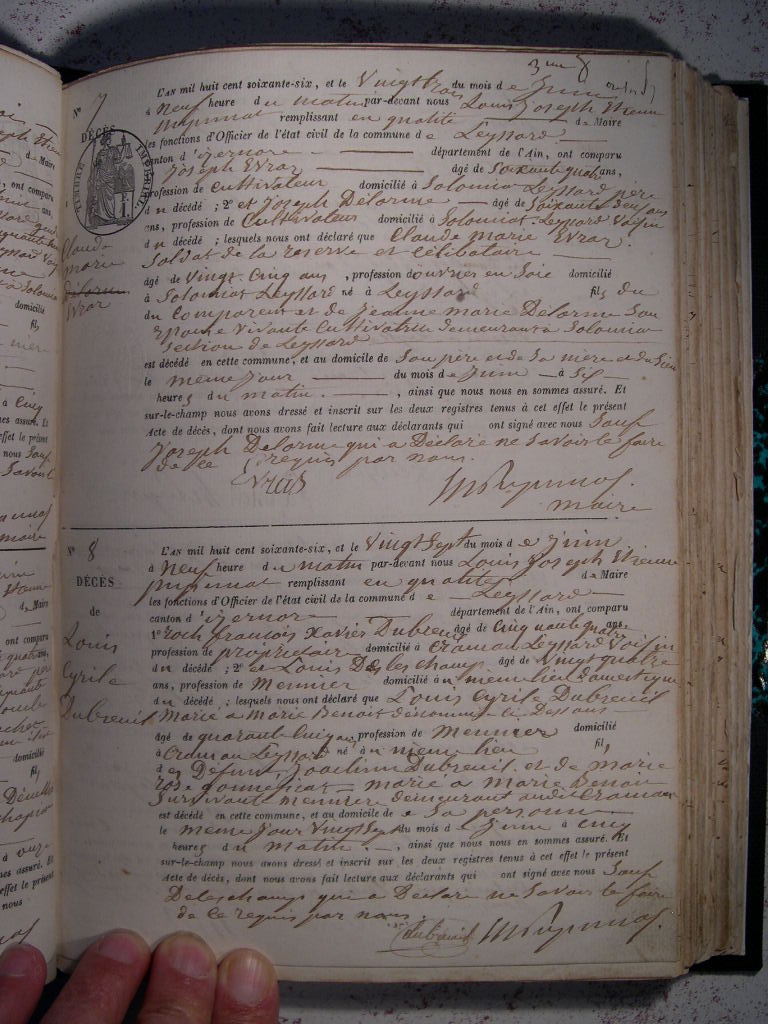 3
Nº 7
DÉCÈS
TIMBRE IMPÉRIAL
Claude
Marie
Delorme
Evrar
L'AN mil huit cent soixante-six, et le Vingt trois du mois de Juin
à Neuf heure du matin par-devant nous Louis Joseph Etienne
remplissant en qualité de Maire
les fonctions d'Officier de l'état civil de la commune de Leyssard
canton d'izernore département de l'Ain, ont comparu
Joseph Evrar âgé de Soixante quatre ans,
profession de cultivateur domicilié à Solomiat Leyssard père
du décédé ; 2º et Joseph Delorme âgé de Soixante deux ans
ans, profession de Cultivateur domicilié à Solomiat Leyssard Voisin
du décédé ; lesquels nous ont déclaré que Claude Marie Evrar
Soldat de la reserve et Celibataire
âgé de Vingt Cinq ans, profession d'ouvrier en Soie domicilié
à Solomiat Leyssard né à Leyssard fils du
du Comparent et de Jeanne Marie Delorme Son
epouse Vivante Cultivatrice demeurant à Solomiat
Section de Leyssard
est décédé en cette commune, et au domicile de Son père et de Sa mère et du Sien
le meme jour du mois de Juin à Six
heures du matin, ainsi que nous nous en sommes assuré. Et
sur-le-champ nous avons dressé et inscrit sur les deux registres tenus à cet effet le présent
Acte de décès, dont nous avons fait lecture aux déclarants qui ont signé avec nous Sauf
Joseph Delorme qui a Déclaré ne Savoir le faire
de ce requis par nous.
Evras
maire
Nº 8
DÉCÈS
de
Louis
Cyrile
Dubreuil
L'AN mil huit cent soixante-six, et le Vingt Sept du mois de Juin
à Neuf heure du matin par-devant nous Louis Joseph Etienne
remplissant en qualité de Maire
les fonctions d'Officier de l'état civil de la commune de Leyssard
canton d'izernore département de l'Ain, ont comparu
1º roch francois Xavier Dubreuil âgé de Cinquante quatre ans,
profession de proprietaire domicilié à Craman Leyssard Voisin
du décédé ; 2º et Louis Deleschamp âgé de Vingt quatre
ans, profession de Meunier domicilié à u meme lieu domestique
du décédé ; lesquels nous ont déclaré que Louis Cyrile Dubreuil
Marié a Marie Benoit dénommé ci Dessous
âgé de quarante huit ans, profession de Meunier domicilié
à Craman Leyssard né au meme lieu fils
de Defunt Joachim Dubreuil et de marie
rose marié a Marie Benoit
Survivante meuniere demeurant audit Craman
est décédé en cette commune, et au domicile de Sa personne
le meme jour Vingt Sept du mois de Juin à cinq
heures du matin, ainsi que nous nous en sommes assuré. Et
sur-le-champ nous avons dressé et inscrit sur les deux registres tenus à cet effet le présent
Acte de décès, dont nous avons fait lecture aux déclarants qui ont signé avec nous Sauf
Deleschamps qui a Declaré ne Savoir le faire
de ce requis par nous.
dubreuil